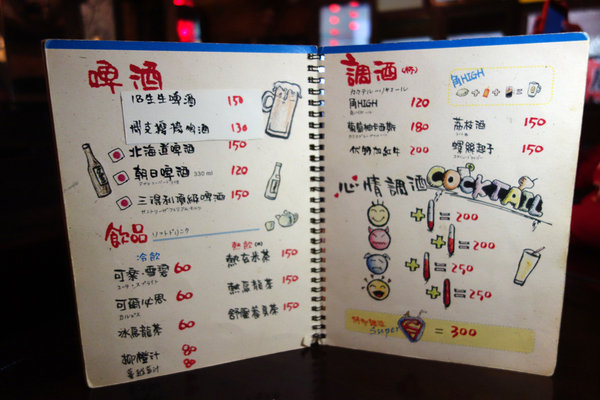 啤酒
18生生啤酒 150
130
北海道啤酒 150
朝日啤酒 330 ml 120
三得利頂級啤酒 150
飲品 ソフトドリンク
冷飲
可樂・雪碧 60
コーラ・スプライト
可爾必思 60
カルピス
冰烏龍茶 60
柳橙汁 80
80
熱飲
熱玄米茶 150
熱烏龍茶 150
150
調酒
角HIGH 120
葡萄柚卡西斯 180
200
角HIGH
+ + =
荔枝酒 150
螺絲起子 150
心情調酒 COCKTAIL
+ = 200
+ = 200
+ = 250
+ = 250
Super = 300